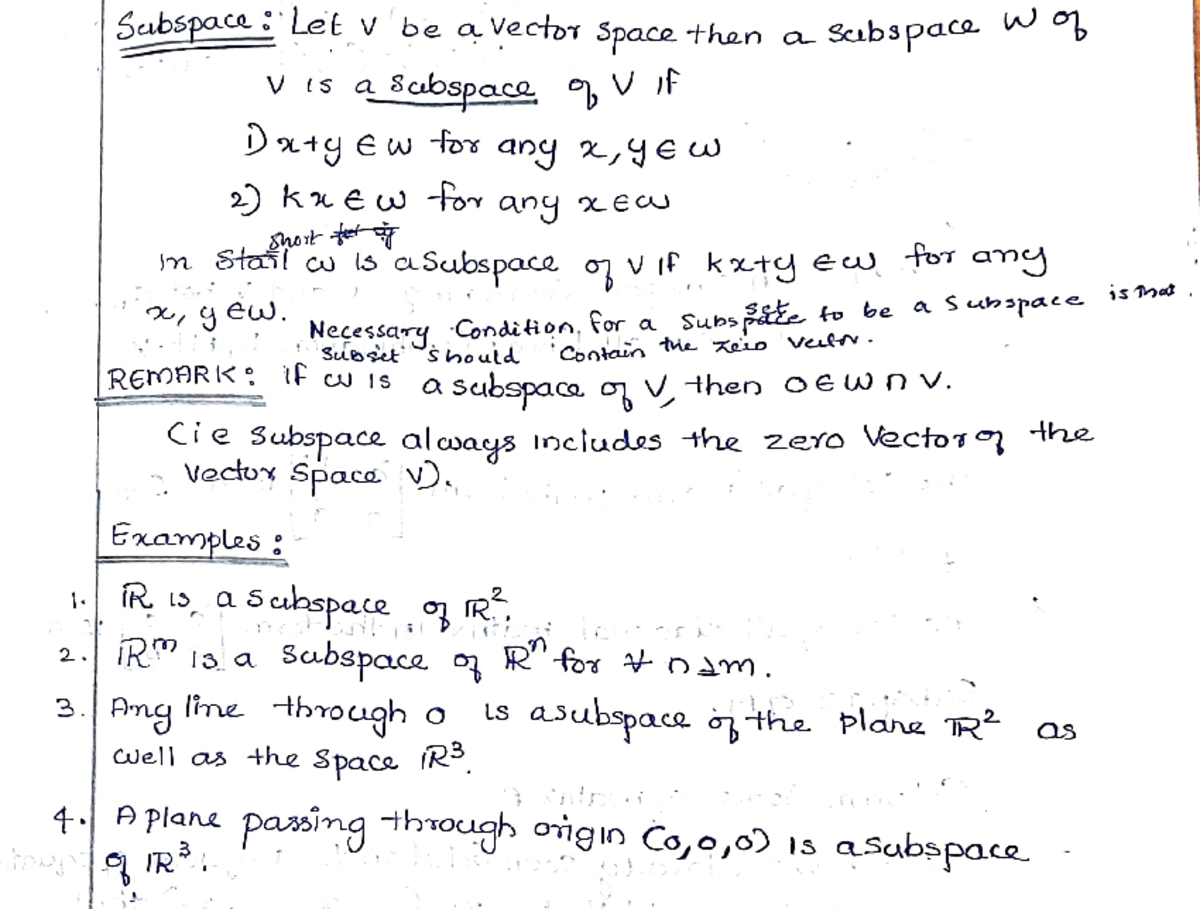 Subspace : Let V be a Vector Space then a subspace W of
V is a subspace of V if
1) x+y ∈ W for any x, y ∈ W
2) kx ∈ W for any x ∈ W
short
In W is a subspace of V if kx+y ∈ W for any
x, y ∈ W.
Necessary Condition, for a Subset to be a Subspace is that
subset should Contain the zero vector.
REMARK : if W is a subspace of V, then 0 ∈ W ∩ V.
(ie Subspace always includes the zero Vector of the
Vector Space V).
Examples :
1. ℝ is a subspace of ℝ².
2. ℝᵐ is a subspace of ℝⁿ for ∀ n ≥ m.
3. Any line through 0 is a subspace of the plane ℝ² as
well as the Space ℝ³.
4. A plane passing through origin (0,0,0) is a subspace
of ℝ³.